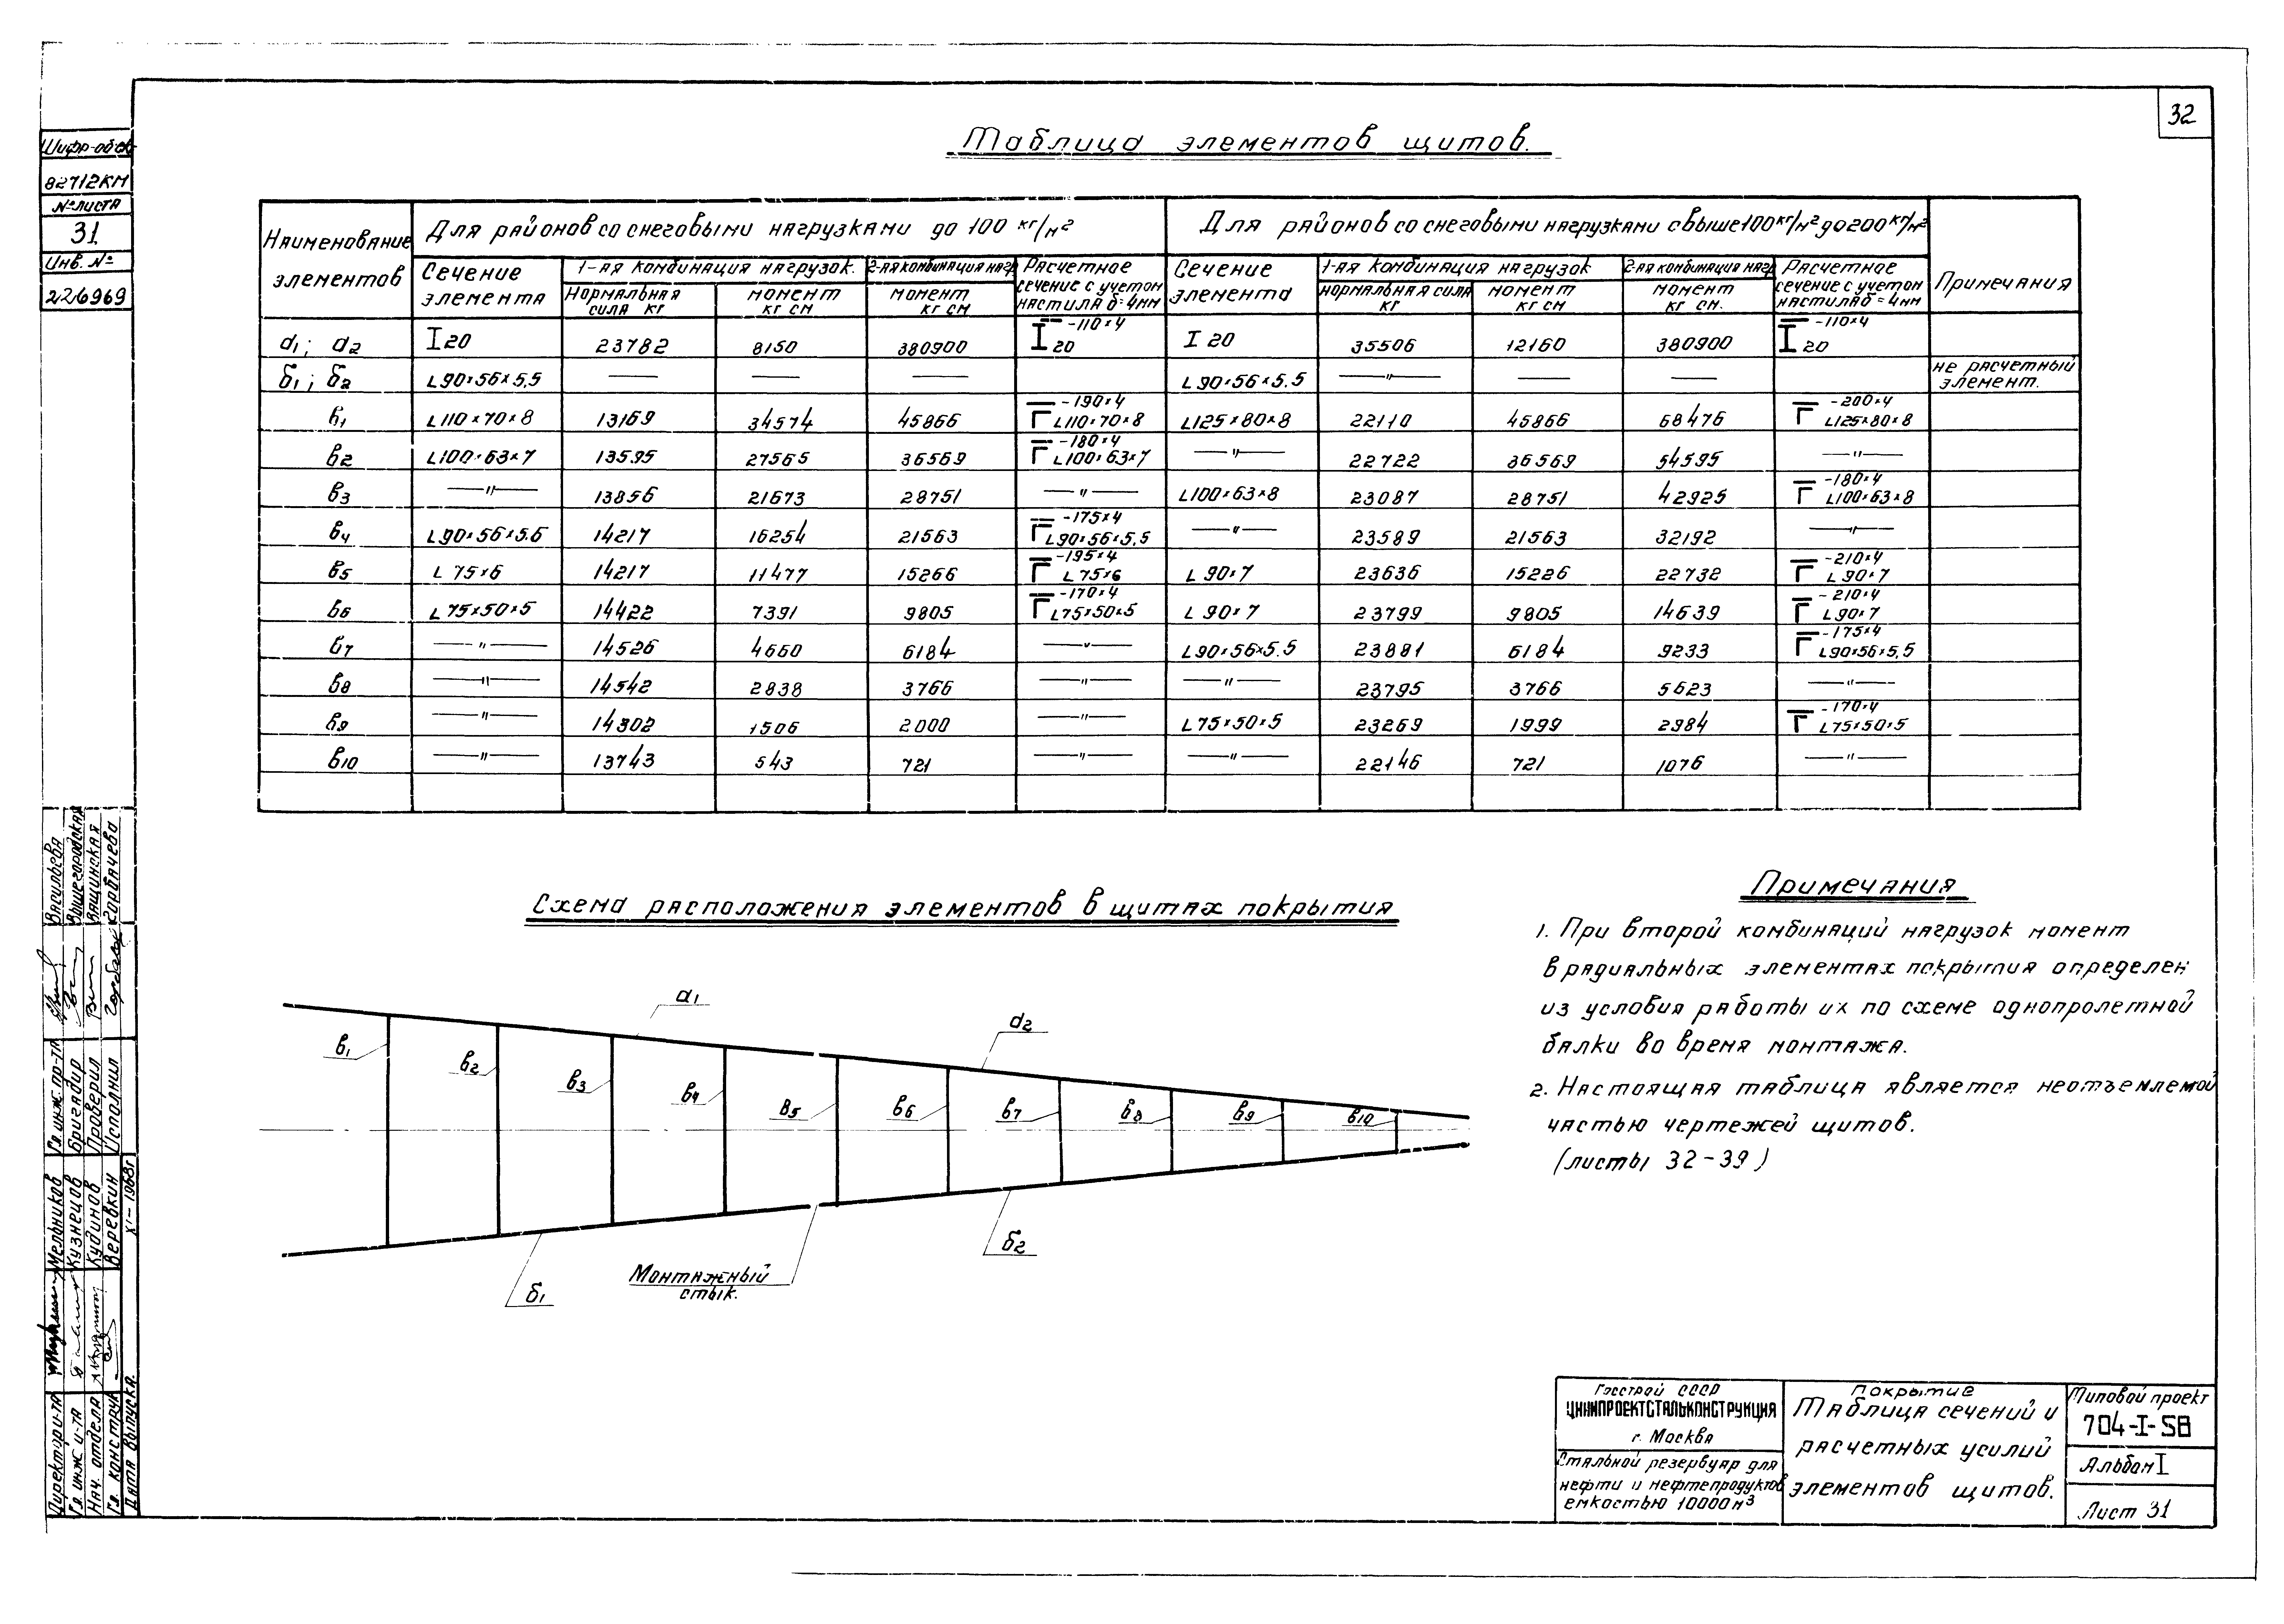 32
Шифр-об‘ек
82712КМ
№ листа
31
Инв. №
226969
Таблица элементов щитов.
Наименование элементов | Для районов со снеговыми нагрузками до 100 кг/м² | Для районов со снеговыми нагрузками свыше 100 кг/м² до 200 кг/м² | Примечания
Сечение элемента | 1-ая комбинация нагрузок. | 2-ая комбинация нагр | Расчетное сечение с учетом настила δ=4мм | Сечение элемента | 1-ая комбинация нагрузок | 2-ая комбинация нагр | Расчетное сечение с учетом настила δ=4мм
Нормальная сила кг | момент кг см | момент кг см | нормальная сила кг | момент кг см | момент кг см.
а1; а2 | I 20 | 23782 | 8150 | 380900 | -110×4 I 20 | I 20 | 35506 | 12160 | 380900 | -110×4 I 20
б1; б2 | L90×56×5,5 | — | — | — | L90×56×5.5 | —"— | — | — | не расчетный элемент.
в1 | L110×70×8 | 13169 | 34574 | 45866 | -190×4 L110×70×8 | L125×80×8 | 22110 | 45866 | 68476 | -200×4 L125×80×8
в2 | L100×63×7 | 13595 | 27565 | 36569 | -180×4 L100×63×7 | —"— | 22722 | 36569 | 54595 | —"—
в3 | —"— | 13856 | 21673 | 28751 | —"— | L100×63×8 | 23087 | 28751 | 42925 | -180×4 L100×63×8
в4 | L90×56×5.6 | 14217 | 16254 | 21563 | -175×4 L90×56×5,5 | —"— | 23589 | 21563 | 32192 | —"—
в5 | L 75×6 | 14217 | 11477 | 15266 | -195×4 L 75×6 | L 90×7 | 23636 | 15226 | 22732 | -210×4 L 90×7
в6 | L 75×50×5 | 14422 | 7391 | 9805 | -170×4 L75×50×5 | L 90×7 | 23799 | 9805 | 14639 | -210×4 L90×7
в7 | —"— | 14526 | 4660 | 6184 | —"— | L90×56×5.5 | 23881 | 6184 | 9233 | -175×4 L90×56×5,5
в8 | —"— | 14542 | 2838 | 3766 | —"— | —"— | 23795 | 3766 | 5623 | —"—
в9 | —"— | 14302 | 1506 | 2000 | —"— | L75×50×5 | 23269 | 1999 | 2984 | -170×4 L75×50×5
в10 | —"— | 13743 | 543 | 721 | —"— | —"— | 22146 | 721 | 1076 | —"—
Схема расположения элементов в щитах покрытия
а1
а2
в1
в2
в3
в4
в5
в6
в7
в8
в9
в10
б1
б2
Монтажный
стык.
Примечания
1. При второй комбинаций нагрузок момент
в радиальных элементах покрытия определен
из условия работы их по схеме однопролетной
балки во время монтажа.
2. Настоящая таблица является неотъемлемой
частью чертежей щитов.
(листы 32-39)
Госстрой СССР
ЦНИИПРОЕКТСТАЛЬКОНСТРУКЦИЯ
г. Москва
Стальной резервуар для
нефти и нефтепродуктов
емкостью 10000 м³
Покрытие
Таблица сечений и
расчетных усилий
элементов щитов.
Типовой проект
704-1-58
Альбом I
Лист 31
Директор и-та Мельников
Гл. инж и-та Кузнецов
Нач. отдела Кудинов
Гл. конструк Веревкин
Дата выпуска. XI - 1968г
Гл. инж. пр-та Васильева
Бригадир Вышегородская
Проверил Ващинская
Исполнил Горбачева